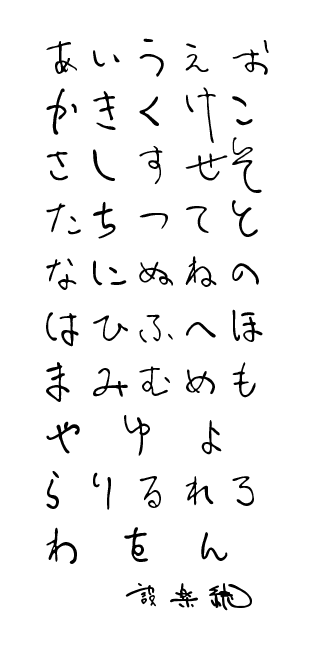 あいうえお
かきくけこ
さしすせそ
たちつてと
なにぬねの
はひふへほ
まみむめも
やゆよ
らりるれろ
わをん
設楽